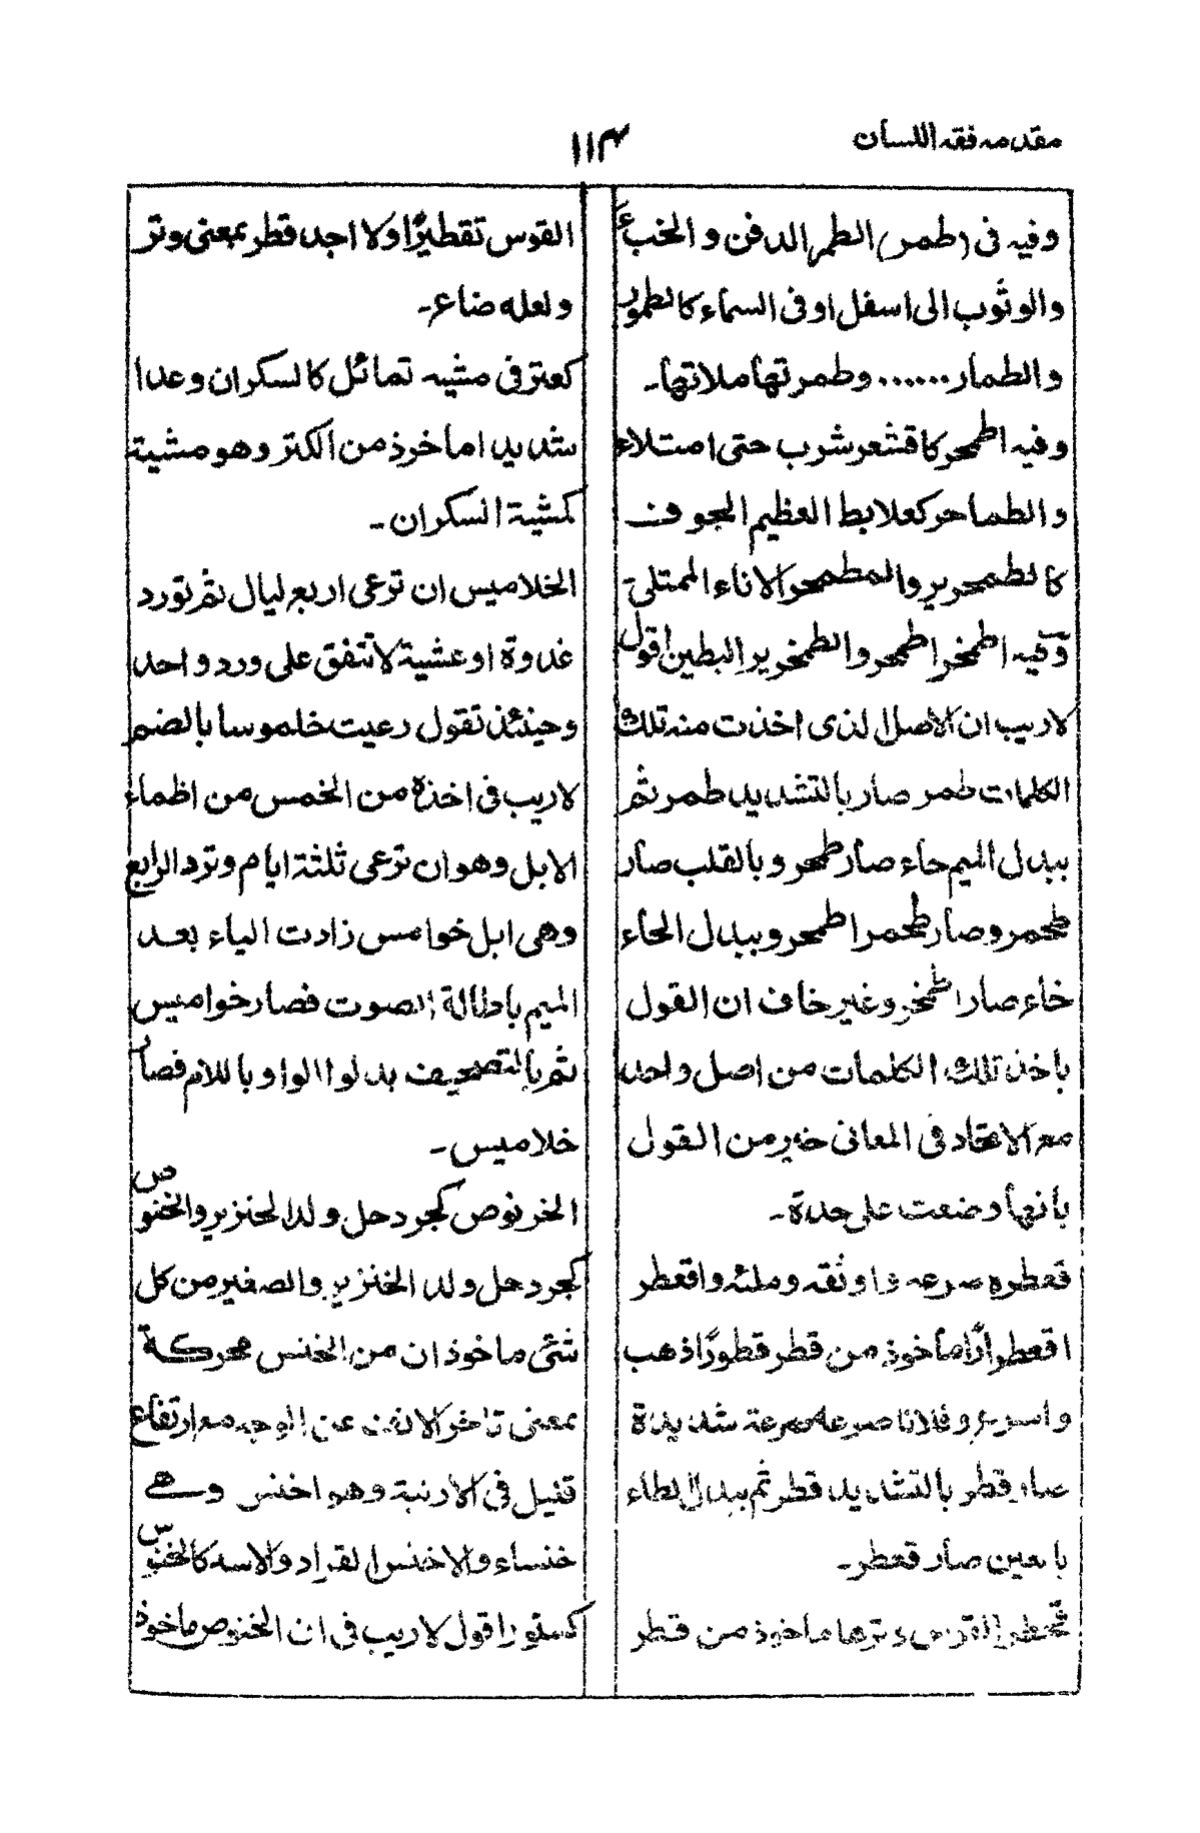 مقدمہ فقہ اللسان
۱۱۴
وفیہ فی (طمر) الطمر الدفن و الخبء
والوثوب الی اسفل او فی السماء کالطمور
والطمار ...... وطمرتھا ملاتھا۔
وفیہ اطمحر کاقشعر شرب حتی امتلاء
والطماحر کعلابط العظیم الجوف
کالطمحریر والمطمحر الاناء الممتلئ
وفیہ اطمخر اطمحر والطمخریر البطین اقول
لاریب ان الاصل الذی اخذت منہ تلک
الکلمات طمر صار بالتشدید طمر ثم
ببدل المیم حاء صار طمحر وبالقلب صار
طحمر وصار طحمر اطمحر وببدل الحاء
خاء صار اطمخر وغیر خاف ان القول
باخذ تلک الکلمات من اصل واحد
مع الاتحاد فی المعانی خیر من القول
بانھا وضعت علی حدۃ۔
قعطرہ صرعہ واوثقہ وملئہ واقعطر
اقعطرارًا ماخوذ من قطر قطورًا ذھب
واسرع وفلانا صرعہ صرعۃ شدیدۃ
صار قطر بالتشدید قطر ثم ببدل الطاء
بالعین صار قعطر۔
قحطر القوس وترھا ماخوذ من قطر
القوس تقطیرًا ولا اجد قطر بمعنی وتر
ولعلہ ضاع۔
کعتر فی مشیہ تمائل کالسکران وعدا
شدیدا ماخوذ من الکتر وھو مشیۃ
کمشیۃ السکران۔
الخلامیس ان ترعی اربع لیال ثم تورد
غدوۃ او عشیۃ لا تتفق علی ورد واحد
وحینئذ تقول رعیت خلموسا بالضم
لاریب فی اخذہ من الخمس من اظماء
الابل وھو ان ترعی ثلثۃ ایام وترد الرابع
وھی ابل خوامس زادت الیاء بعد
المیم باطالۃ الصوت فصار خوامیس
ثم بالتصحیف بدلوا الواو باللام فصار
خلامیس۔
الخرنوص کجردحل ولد الخنزیر والخنوص
کجردحل ولد الخنزیر والصغیر من کل
شئی ماخوذ ان من الخنس محرکۃ
بمعنی تاخر الانف عن الوجہ مع ارتفاع
قلیل فی الارنبۃ وھو اخنس وھی
خنساء والاخنس القراد والاسد کالخنوس
کسنور اقول لاریب فی ان الخنوص ماخوذ